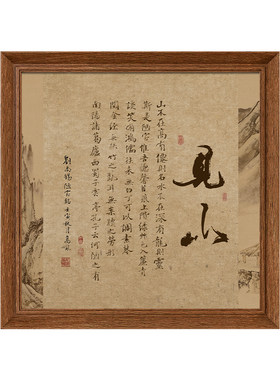 見山
山不在高有僊則名水不在深有龍則靈
斯是陋室惟吾德馨苔痕上階綠草色入簾青
談笑有鴻儒往來無白丁可以調素琴
閱金經無絲竹之亂耳無案牘之勞形
南陽諸葛廬西蜀子雲亭孔子云何陋之有
劉禹錫陋室銘